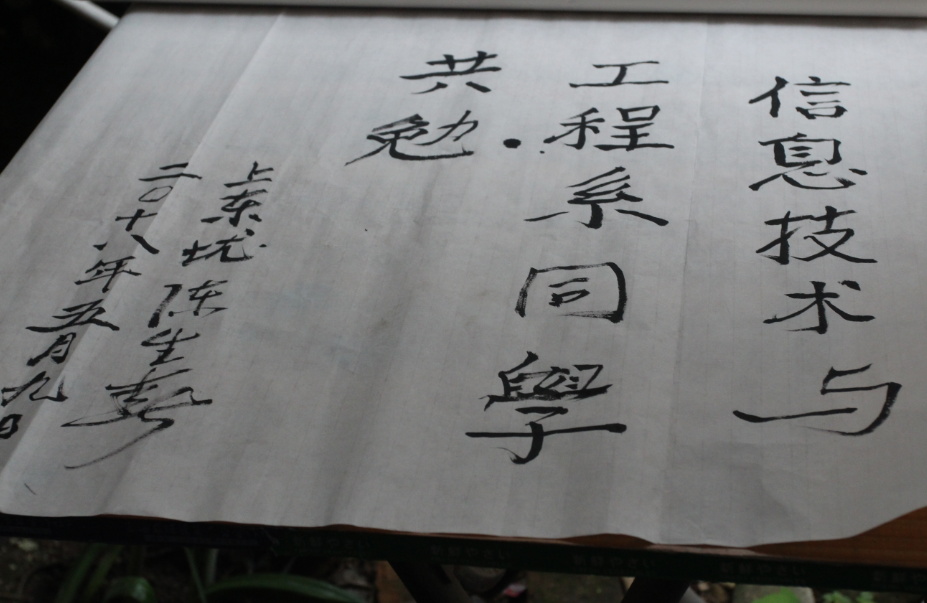 信息技术与
工程系同學
共勉.
上东坑
陈生
二〇十八年五月九日